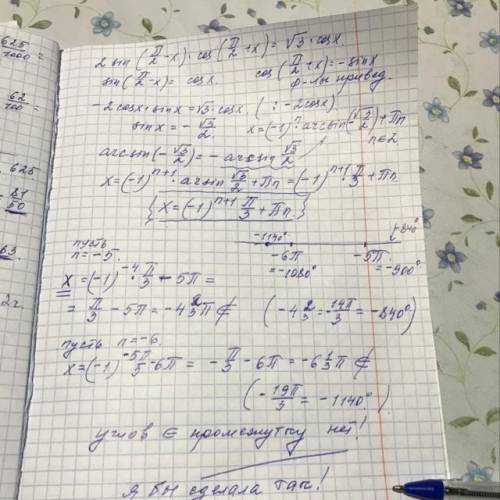 625
1000
62
100
. 625
81
50
63.
2г.
2 sin (π/2 - x) · cos (π/2 + x) = √3 · cos x.
sin (π/2 - x) = cos x    cos (π/2 + x) = - sin x
ф-лы привед.
-2 cos x · sin x = √3 · cos x. ( : -2 cos x)
sin x = - √3/2.    x = (-1)^n · arcsin (-√3/2) + πn
n ∈ Z
arcsin (-√3/2) = - arcsin √3/2
x = (-1)^(n+1) · arcsin √3/2 + πn = (-1)^(n+1) · π/3 + πn
{ x = (-1)^(n+1) π/3 + πn }
-1140°    -840°
-6π    -5π
= -1080°    = -900°
пусть
n = -5.
x = (-1)^(-4) · π/3 - 5π =
= π/3 - 5π = -4 2/3 π ∉    (-4 2/3 = -14π/3 = -840°)
пусть n = -6
x = (-1)^(-5) π/3 - 6π = - π/3 - 6π = -6 1/3 π ∉
(- 19π/3 = -1140°)
углов ∈ промежутку нет!
я бы сделала так!